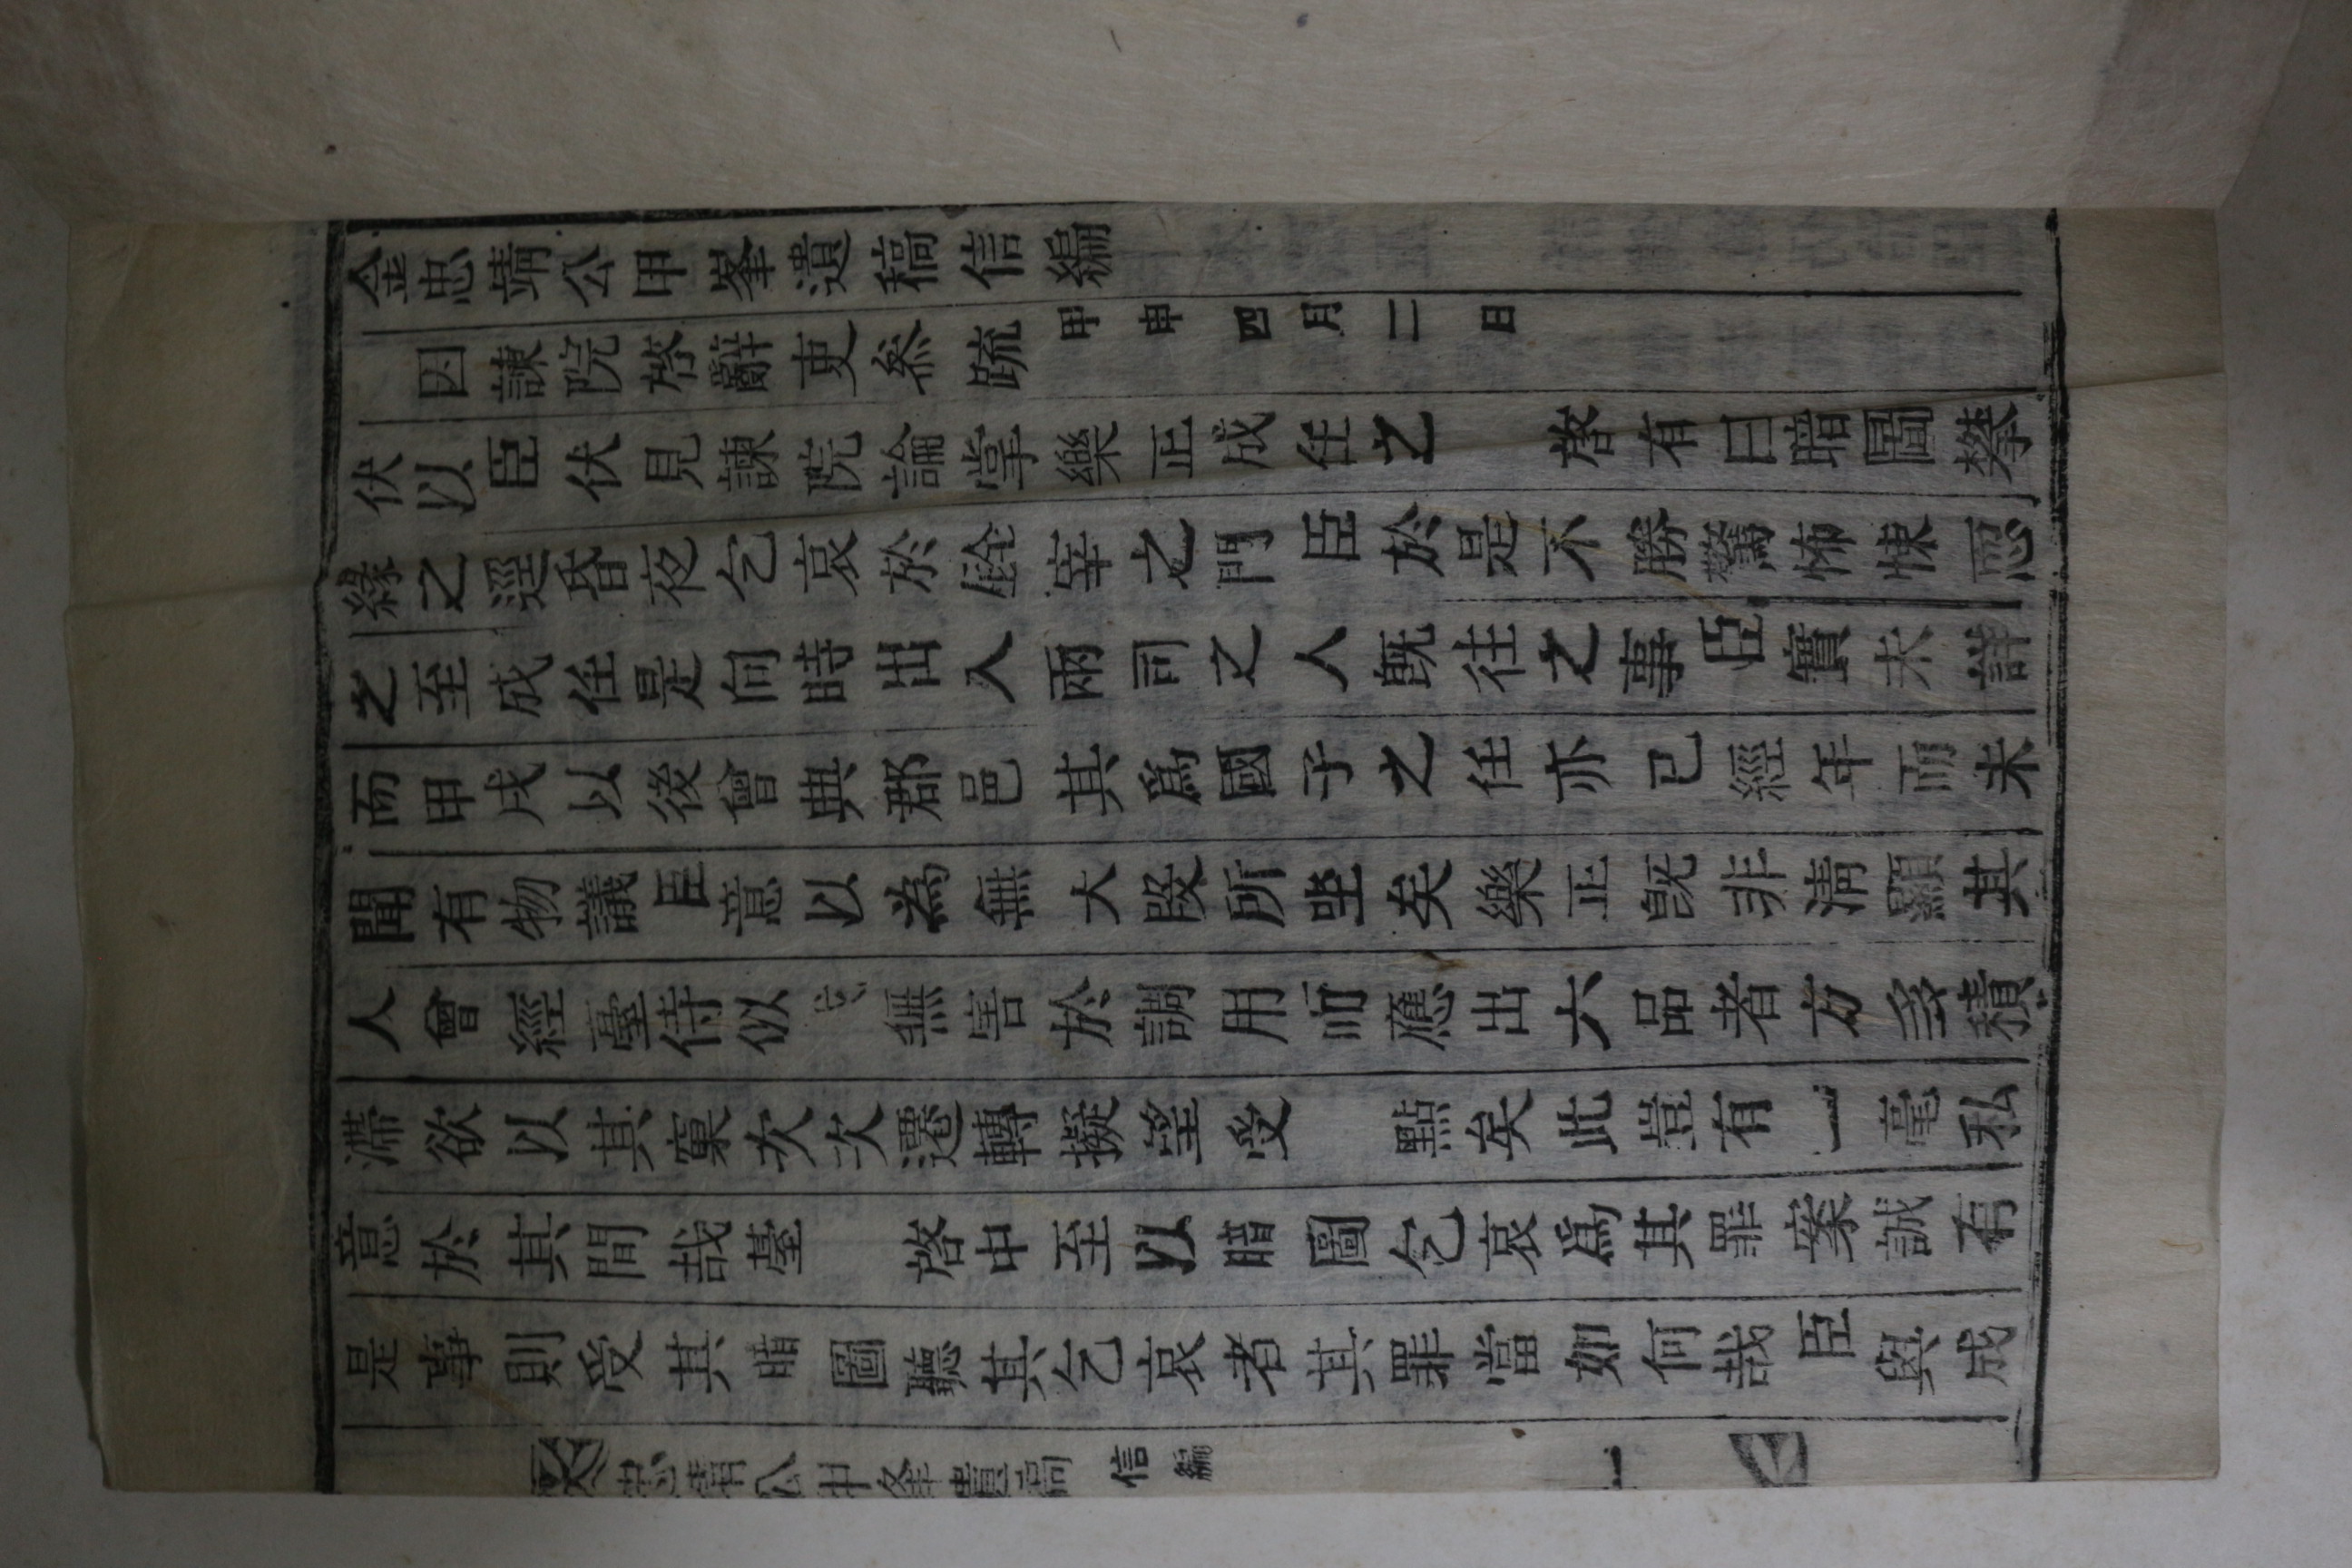 金忠靖公甲峯遺稿信編
因諫院啓辭吏參疏甲申四月二日
伏以臣伏見諫院論掌樂正成任之　啓有曰暗圖攀
緣之逕昏夜乞哀於銓宰之門臣於是不勝驚怖悚恧
之至成任是向時出入兩司之人旣往之事臣實未詳
而甲戌以後曾典郡邑其爲國子之任亦已經年而未
聞有物議臣意以爲無大段所坐矣樂正旣非淸顯其
人曾經臺侍似無害於調用而應出六品者方多積
滯欲以其窠次次遷轉擬望受　點矣此豈有一毫私
意於其間哉臺　啓中至以暗圖乞哀爲其罪案誠有
是事則受其暗圖聽其乞哀者其罪當如何哉臣與成
忠靖公甲峯遺稿　信編　一